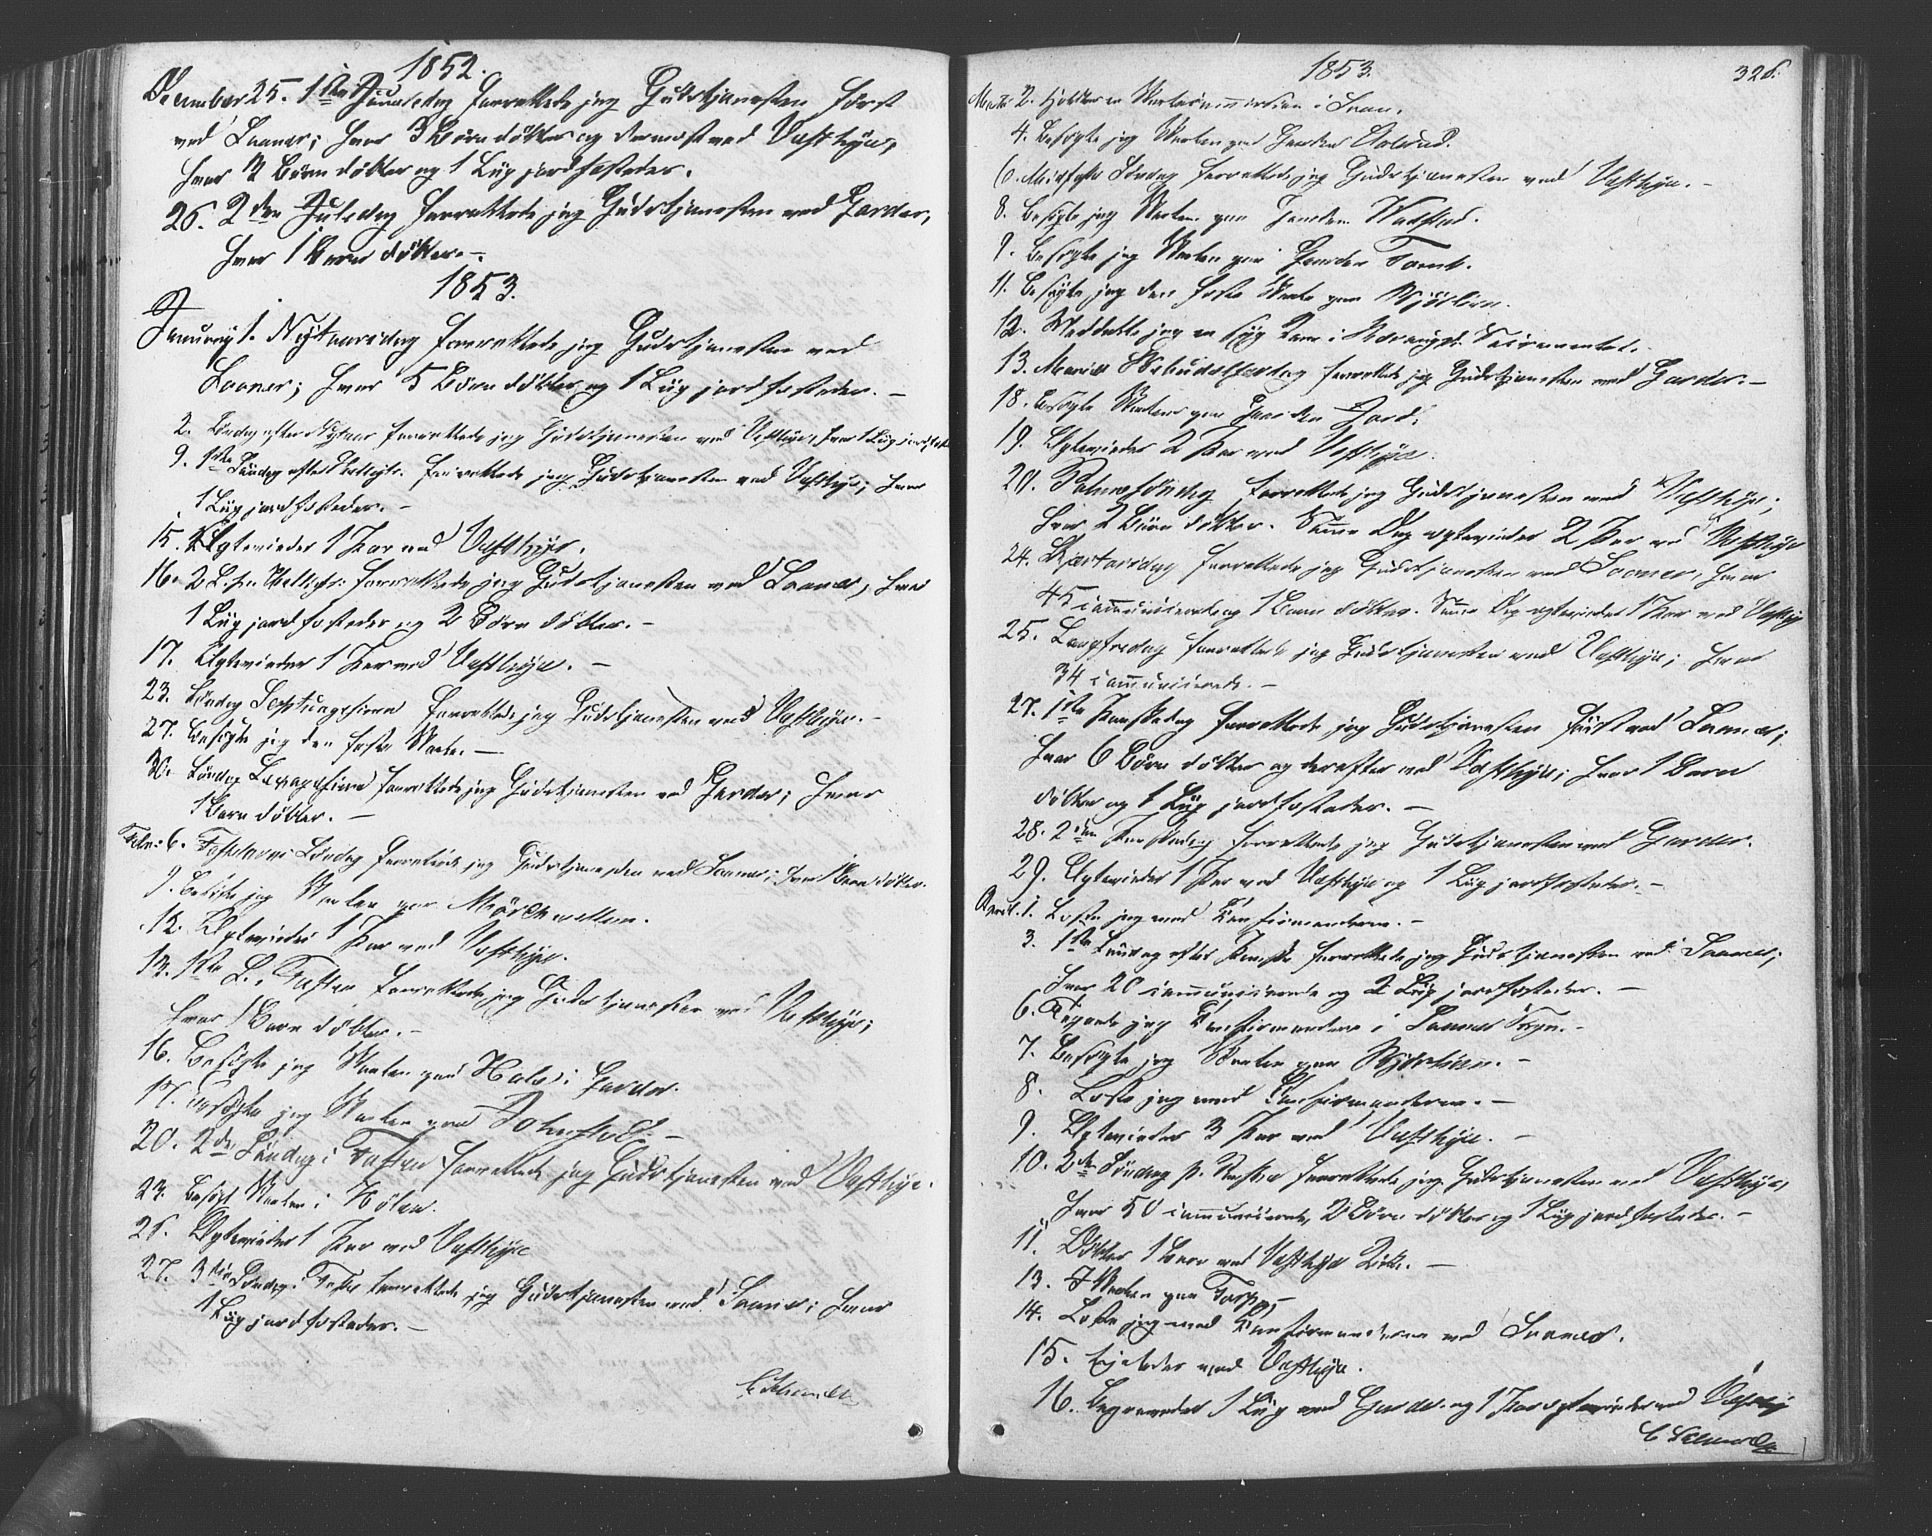 1852.
December 25. 1ste Juledag forrettede jeg Gudstjenesten først
ved Saaner; hvor 3 Børn døbtes og dernæst ved Vestbye,
hvor 2 Børn døbtes og 1 Liig jordfæstedes.
26. 2den Juledag forrettede jeg Gudstjenesten ved Garder,
hvor 1 Barn døbtes.-
1853.
Januar 1. Nytaarsdag forrettede jeg Gudstjenesten ved
Saaner; hvor 5 Børn døbtes og 1 Liig jordfæstedes. -
2. Søndag efter Nytaar forrettede jeg Gudstjenesten ved Vestbye, hvor 1 Liig
9. 1ste Søndag efter forrettede jeg Gudstjenesten ved Vestbye; hvor
1 Liig jordfæstedes. -
15. Ægteviedes 1 Par ved Vestbye.
16. 2 S. forrettede jeg Gudstjenesten ved Saaner, hvor
1 Liig jordfæstedes og 2 Børn døbtes. -
17. Ægteviedes 1 Par ved Vestbye. -
23. Søndag Septuagesima forrettede jeg Gudstjenesten ved Vestbye. -
27. Besøgte jeg den faste Skole. -
30. Søndag Sexagesima forrettede jeg Gudstjenesten ved Garder; hvor
1 Barn døbtes. -
Febr: 6. Fastelavns Søndag forrettede jeg Gudstjenesten ved Saaner; hvor 1 Barn døbtes.
9. Besøgte jeg Skolen paa
12. Ægteviedes 1 Par ved Vestbye.
13. 1ste S. i Fasten forrettede jeg Gudstjenesten ved Vestbye;
hvor 1 Barn døbtes. -
16. Besøgte jeg Skolen paa i Garder.
17. Besøgte jeg Skolen paa
20. 2den Søndag i Fasten forrettede jeg Gudstjenesten ved Vestbye.
23. Besøgt Skolen i Hølen.
26. Ægteviedes 1 Par ved Vestbye
27. 3die Søndag i Faste forrettede jeg Gudstjenesten ved Saaner; hvor
1 Liig jordfæstedes. -
1853.
328.
Marts 2. Holdtes en i Saan.
4. Besøgte jeg Skolen paa Gaarden
6. Midfaste Søndag forrettede jeg Gudstjenesten ved Vestbye. -
8. Besøgte jeg Skolen paa Gaarden
9. Besøgte jeg Skolen paa Gaarden
11. Besøgte jeg den faste Skole paa
12. Meddelte jeg en syg Sacramentet.
13. Mariæ Bebudelsesdag forrettede jeg Gudstjenesten ved Garder. -
18. Besøgte Skolen paa Gaarden
19. Ægteviedes 2 Par ved Vestbye.
20. Palmesøndag forrettede jeg Gudstjenesten ved Vestbye;
hvor 2 Børn døbtes. Samme Dag ægteviedes 2 Par ved Vestbye
24. Skjærtorsdag forrettede jeg Gudstjenesten ved Saaner; hvor
45 communicerede og 1 Barn døbtes. Samme Dag ægteviedes 1 Par ved Vestby
25. Langfredag forrettede jeg Gudstjenesten ved Vestbye; hvor
34 communicerede. -
27. 1ste Paaskedag forrettede jeg Gudstjenesten først ved Saaner;
hvor 6 Børn døbtes og derefter ved Vestbye; hvor 1 Barn
døbtes og 1 Liig jordfæstedes. -
28. 2den Paaskedag forrettede jeg Gudstjenesten ved Garder.
29. Ægteviedes 1 Par ved Vestbye og 1 Liig jordfæstedes. -
April. 1. Læste jeg med Confirmanderne. -
3. 1ste Søndag efter Paaske forrettede jeg Gudstjenesten ved Saaner;
hvor 20 communicerede og 2 Liig jordfæstedes. -
6. jeg Confirmanderne i Saaner Sogn. -
7. Besøgte jeg Skolen paa
8. Læste jeg med Confirmanderne. -
9. Ægteviedes 3 Par ved Vestbye. -
10. 2den Søndag p. Paaske forrettede jeg Gudstjenesten ved Vestbye,
hvor 50 communicerede, 2 Børn døbtes og 1 Liig jordfæstedes. -
11. Døbtes 1 Barn ved Vestbye Kirke. -
13. Skolen paa
14. Læste jeg med Confirmanderne ved Saaner.
15. Ligeledes ved Vestbye.
16. Begravedes 1 Liig ved Garder og 1 Par ægteviedes ved Vestby